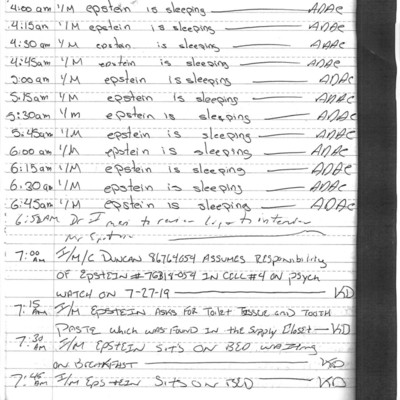 4:00 am I/M epstein is sleeping ADAC
4:15am I/M epstein is sleeping ADAC
4:30 am I/M epstein is sleeping ADAC
4:45am I/M epstein is sleeping ADAC
5:00am I/M epstein is sleeping ADAC
5:15am I/M epstein is sleeping ADAC
5:30am I/m epstein is sleeping ADAC
5:45am I/M epstein is sleeping ADAC
6:00 am I/M epstein is sleeping ADAC
6:15am I/M epstein is sleeping ADAC
6:30am I/M epstein is sleeping ADAC
6:45am I/M epstein is sleeping ADAC
6:52AM Dr to to
Mr Epstein
7:00 AM I/M/C DUNCAN 86764054 ASSUMES RESPONSIBILITY
OF EPSTEIN #76318-054 IN CELL #4 ON PSYCH
WATCH ON 7-27-19 KD
7:15 AM I/M EPSTEIN ASKS FOR TOILET TISSUE AND TOOTH
PASTE which was FOUND IN the Supply Closet KD
7:30 AM I/M EPSTEIN SITS ON BED WAITING
ON BREAKFAST KD
7:45 AM I/M EPSTEIN SITS ON BED KD